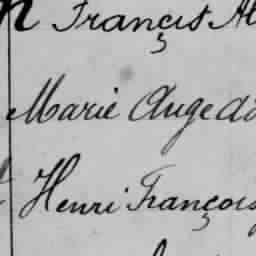 n Françist Al
Marie Ange
Henri François